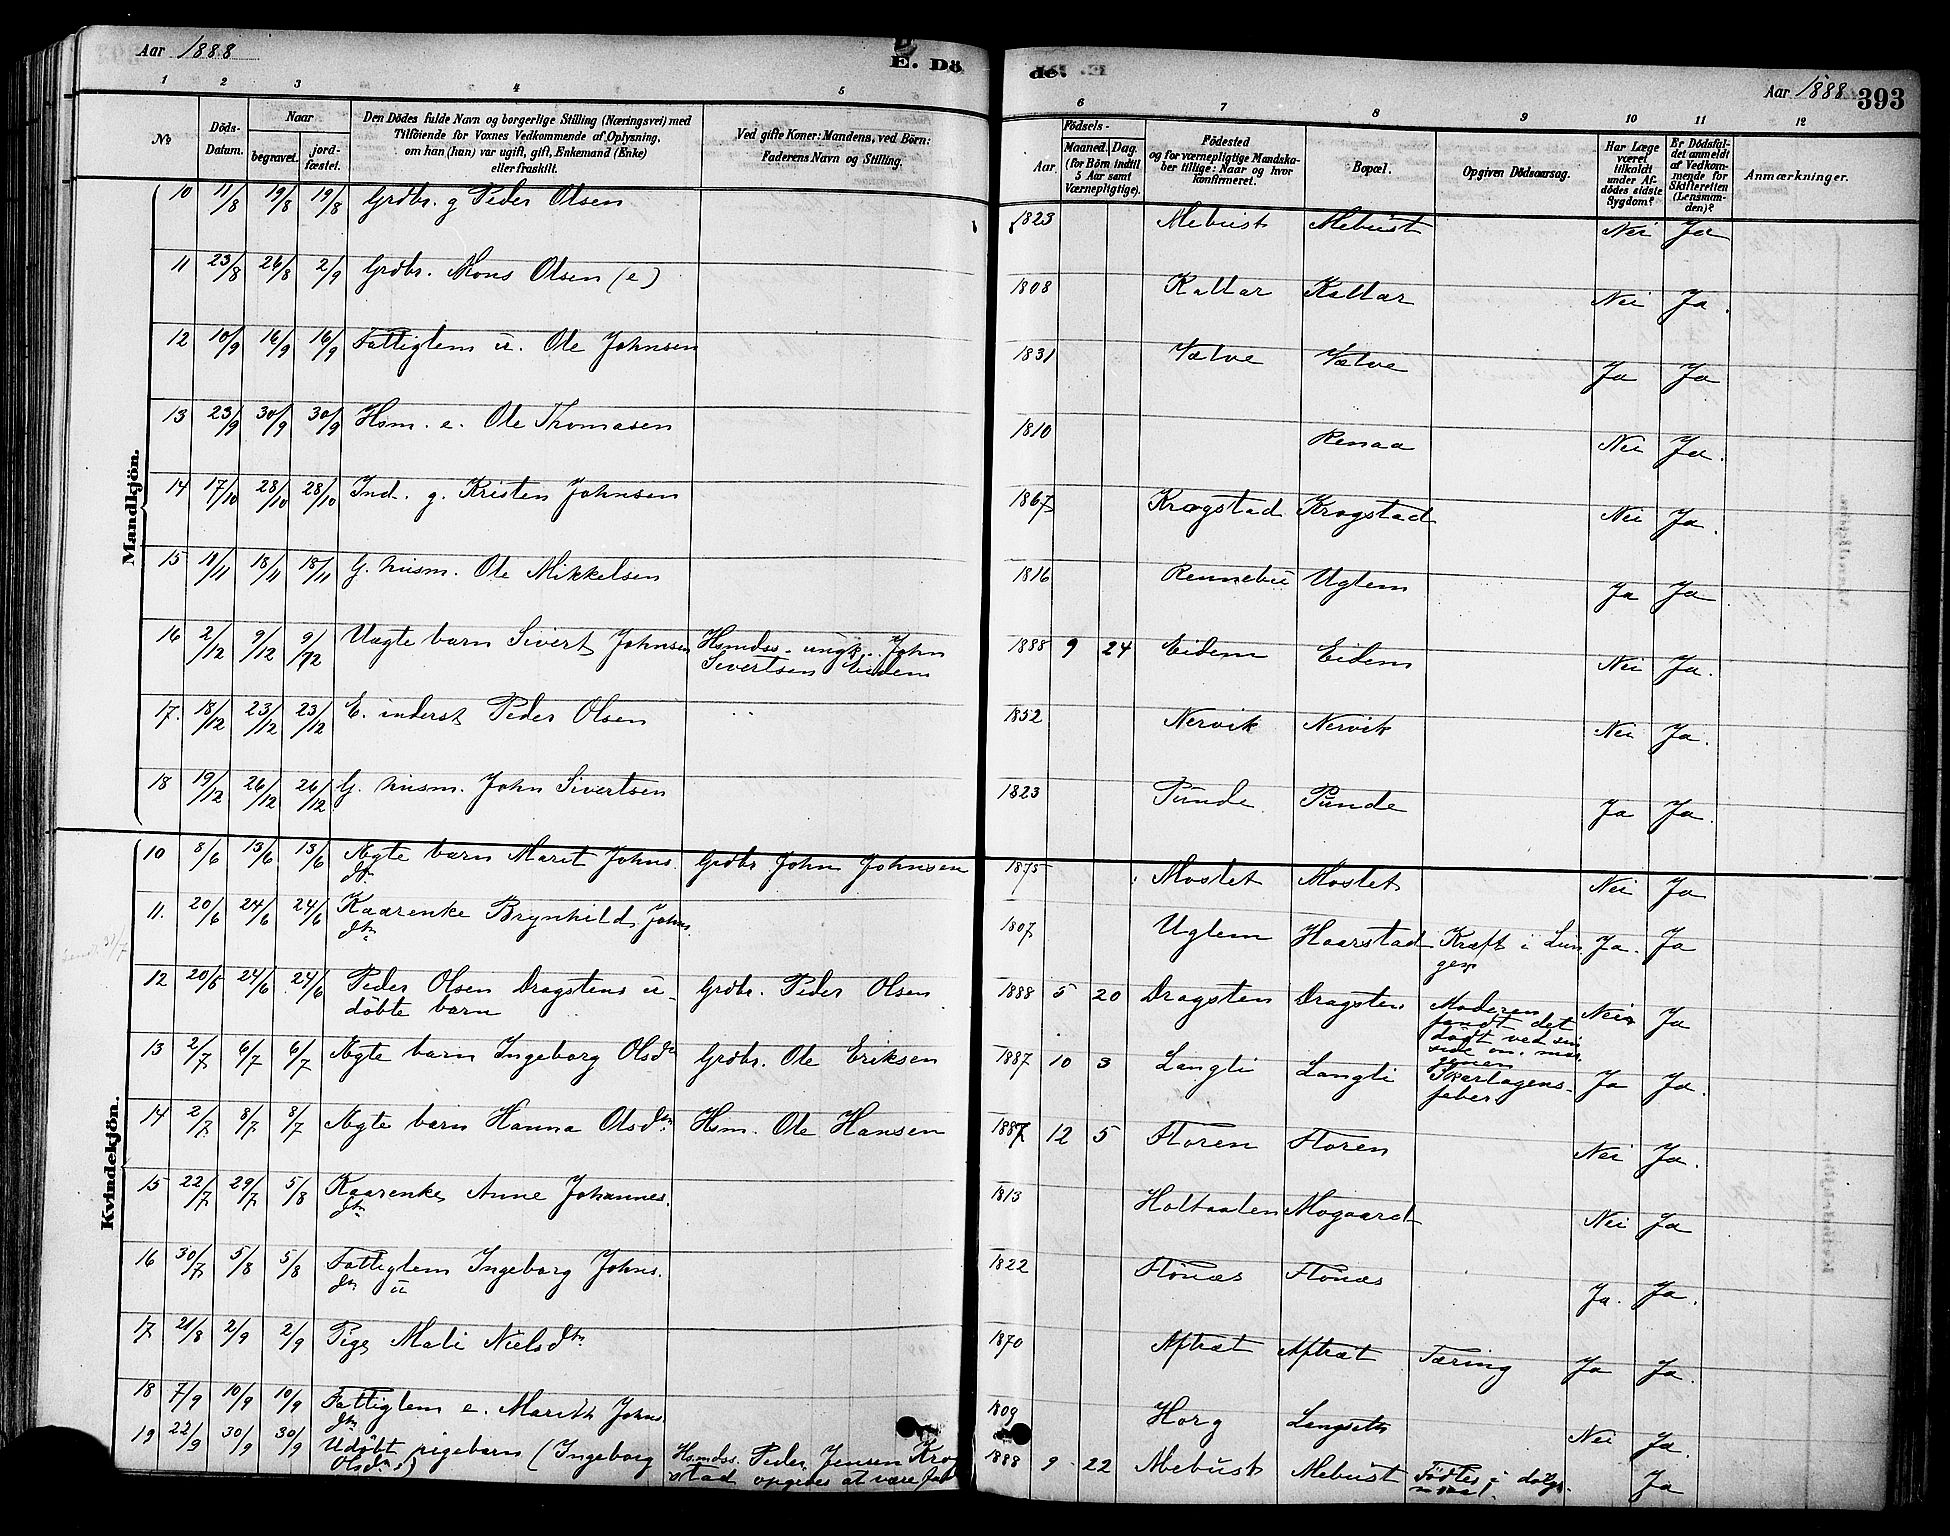 Aar 1888
E. Dö
de.
Aar 1888 393
1 2 3 4 5 6 7 8 9 10 11 12
№
Döds-Datum.
Naar
begravet.
jord-fæstet.
Den Dödes fulde Navn og borgerlige Stilling (Næringsvei) med
Tilföiende for Voxnes Vedkommende af Oplysning,
om han (hun) var ugift, gift, Enkemand (Enke)
eller fraskilt.
Ved gifte Koner: Mandens, ved Börn:
Faderens Navn og Stilling.
Födsels-
Aar.
Maaned.
Dag.
(for Börn indtil
5 Aar samt
Værnepligtige).
Födested
og for værnepligtige Mandska-
ber tillige: Naar og hvor
konfirmeret.
Bopæl.
Opgiven Dödsaarsag.
Har Læge
været
tilkaldt
under Af-
dödes sidste
Sygdom?
Er Dödsfal-
det anmeldt
af Vedkom-
mende for
Skifteretten
(Lensman-
den)?
Anmærkninger.
Mandkjön.
10 11/8 19/8 19/8 Grdbr. g Peder Olsen 1823 Mebust Mebust Nei Ja
11 23/8 26/8 2/9 Grdbr. Mons Olsen (e) 1808 Kaltar Kaltar Nei Ja.
12 10/9 16/9 16/9 Fattiglem u. Ole Johnsen 1831 Vælve Vælve Ja Ja
13 23/9 30/9 30/9 Hsm. e. Ole Thomasen 1810 Renaa Nei Ja.
14 17/10 28/10 28/10 Ind. g. Kristen Johnsen 1867 Krogstad Krogstad Nei Ja.
15 10/11 18/11 18/11 G. husm. Ole Mikkelsen 1816 Rennebu Uglem Ja Ja
16 2/12 9/12 9/12 Uægte barn Sivert Johnsen Hsmdss. ungk. John
Sivertsen Eidem 1888 9 24 Eidem Eidem Nei Ja.
17. 18/12 23/12 23/12 E. inderst Peder Olsen 1852 Nervik Nervik Nei Ja.
18 19/12 26/12 26/12 G. husm. John Sivertsen 1823 Punde Punde Ja Ja.
Kvindekjön.
10 8/6 13/6 13/6 Ægte barn Marit Johns
dtr. Grdbr John Johnsen 1875 Mostet Mostet Nei Ja
11. 20/6 24/6 24/6 Kaarenke Brynhild Johns.
dtr. 1807 Uglem Haarstad Kræft i Lun
gen Ja. Ja
12 20/6 24/6 24/6 Peder Olsen Dragstens u-
döbte barn Grdbr. Peder Olsen 1888 5 20 Dragsten Dragsten Moderen
fandt det
dödt ved sin
side om. mor
genen Nei Ja
13 2/7 6/7 6/7 Ægte barn Ingeborg Olsdtr Grdbr. Ole Eriksen 1887 10 3 Langli Langli Skarlagens-
feber Ja Ja.
14 2/7 8/7 8/7 Ægte barn Hanna Olsdtr. Hsm. Ole Hansen 1887 12 5 Floren Floren Nei Ja.
15 22/7 29/7 5/8 Kaarenke Anne Johannes.
dtr. 1813 Holtaalen Mogaard Nei Ja
16 30/7 5/8 5/8 Fattiglem Ingeborg Johns.
dtr u 1822 Flönæs Flönæs Ja. Ja.
17 21/8 2/9 2/9 Pige Mali Nielsdtr. 1870 Aftræt Aftræt Tæring Ja Ja.
18 7/9 10/9 10/9 Fattiglem e. Marith Johns.
dtr 1809 Horg Langseth Nei Ja.
19 22/9 30/9 30/9 Udöbt pigebarn (Ingeborg
Olsdtr) Hsmdss. Peder Jensen Krog
stad opgives at være 1888 9 22 Mebust Mebust Födtes i dölgs-
maal. Ja